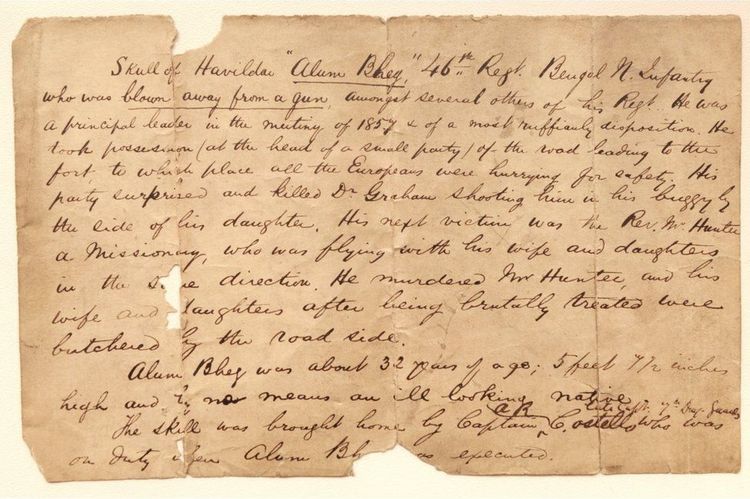 Skull of Havildar "Alum Bheg," 46th Regt. Bengal N. Infantry
who was blown away from a gun, amongst several others of his Regt. He was
a principal leader in the mutiny of 1857 & of a most ruffianly disposition. He
took possession (at the head of a small party) of the road leading to the
fort, to which place all the Europeans were hurrying for safety. His
party surprised and killed Dr. Graham shooting him in his buggy by
the side of his daughter. His next victim was the Rev. Mr. Hunter
a Missionary, who was flying with his wife and daughters
in the same direction. He murdered Mr Hunter, and his
wife and daughters after being brutally treated were
butchered by the road side.
Alum Bheg was about 32 years of age; 5 feet 7 1/2 inches
high and by no means an ill looking native
The skull was brought home by Captain AR Costello late Capt. 7th Drag. Guards who was
on duty when Alum Bheg was executed.